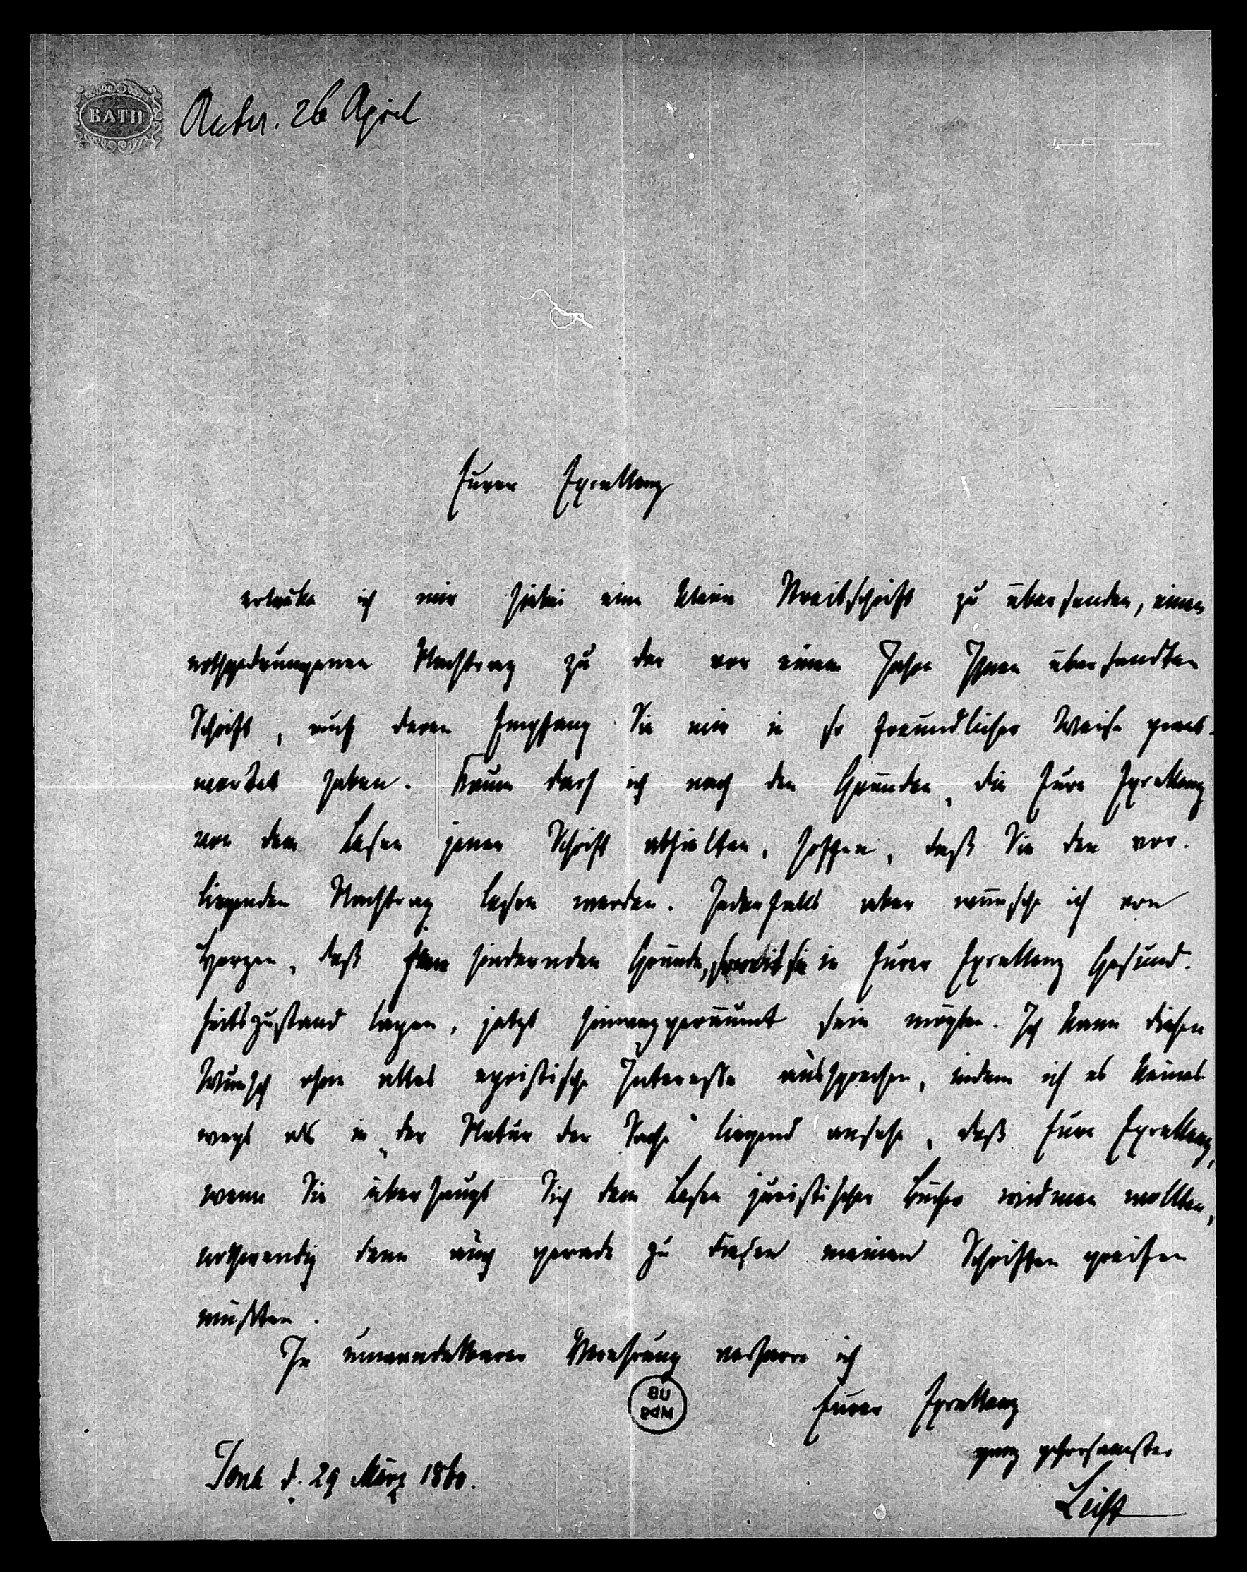 BATH
Antw. 26 April
Eurer Excellenz
erlaube ich mir hiebei eine kleine Streitschrift zu übersenden, einen
nothgedrungenen Nachtrag zu der vor einem Jahre Ihnen übersendten
Schrift, auf deren Empfang Sie mir in so freundlicher Weise geant-
wortet haben. Kaum darf ich nach den Gründen, die Eure Excellenz
von dem Lesen jener Schrift abhielten, hoffen, daß Sie den vor-
liegenden Nachtrag lesen werden. Jedenfalls aber wünsche ich von
Herzen, daß jene hindernden Gründe, soweit sie in Eurer Excellenz Gesund-
heitszustand lagen, jetzt hinweggeräumt sein mögten. Ich kann diesen
Wunsch ohne alles egoistische Interesse aussprechen, indem ich es keines-
wegs als in „der Natur der Sache" liegend ansehe, daß Eure Excellenz,
wenn Sie überhaupt Sich dem Lesen juristischer Bücher widmen wollten,
nothwendig dann auch gerade zu diesen meinen Schriften greifen
müßten.
In unwandelbarer Verehrung verharre ich
Eurer Excellenz
ganz gehorsamster
Leist
Jena d. 29 März 1860.
UB
MBG